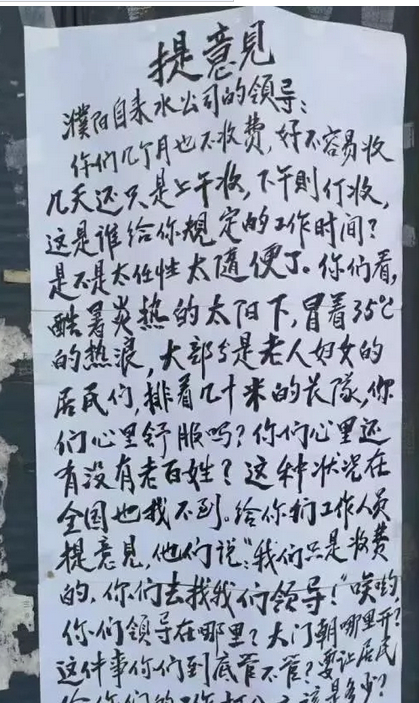 提意見
濮阳自来水公司的领导:
你们几个月也不收费,好不容易收
几天还只是上午收,下午则仃收,
这是谁给你規定的工作时间?
是不是太任性太隨便了。你们看,
酷暑炎热的太阳下,冒着35℃
的热浪,大部分是老人妇女的
居民们,排着几十米的长隊,你
们心里舒服吗?你们心里还
有没有老百姓?这种状况在
全国也找不到。给你们工作人员
提意见,他们说:"我们只是收费
的,你们去找我们领导!"唉哟,
你们领导在哪里?大门朝哪里开?
这件事你们到底管不管?要让居民
给你们的工作打分应该是多少?